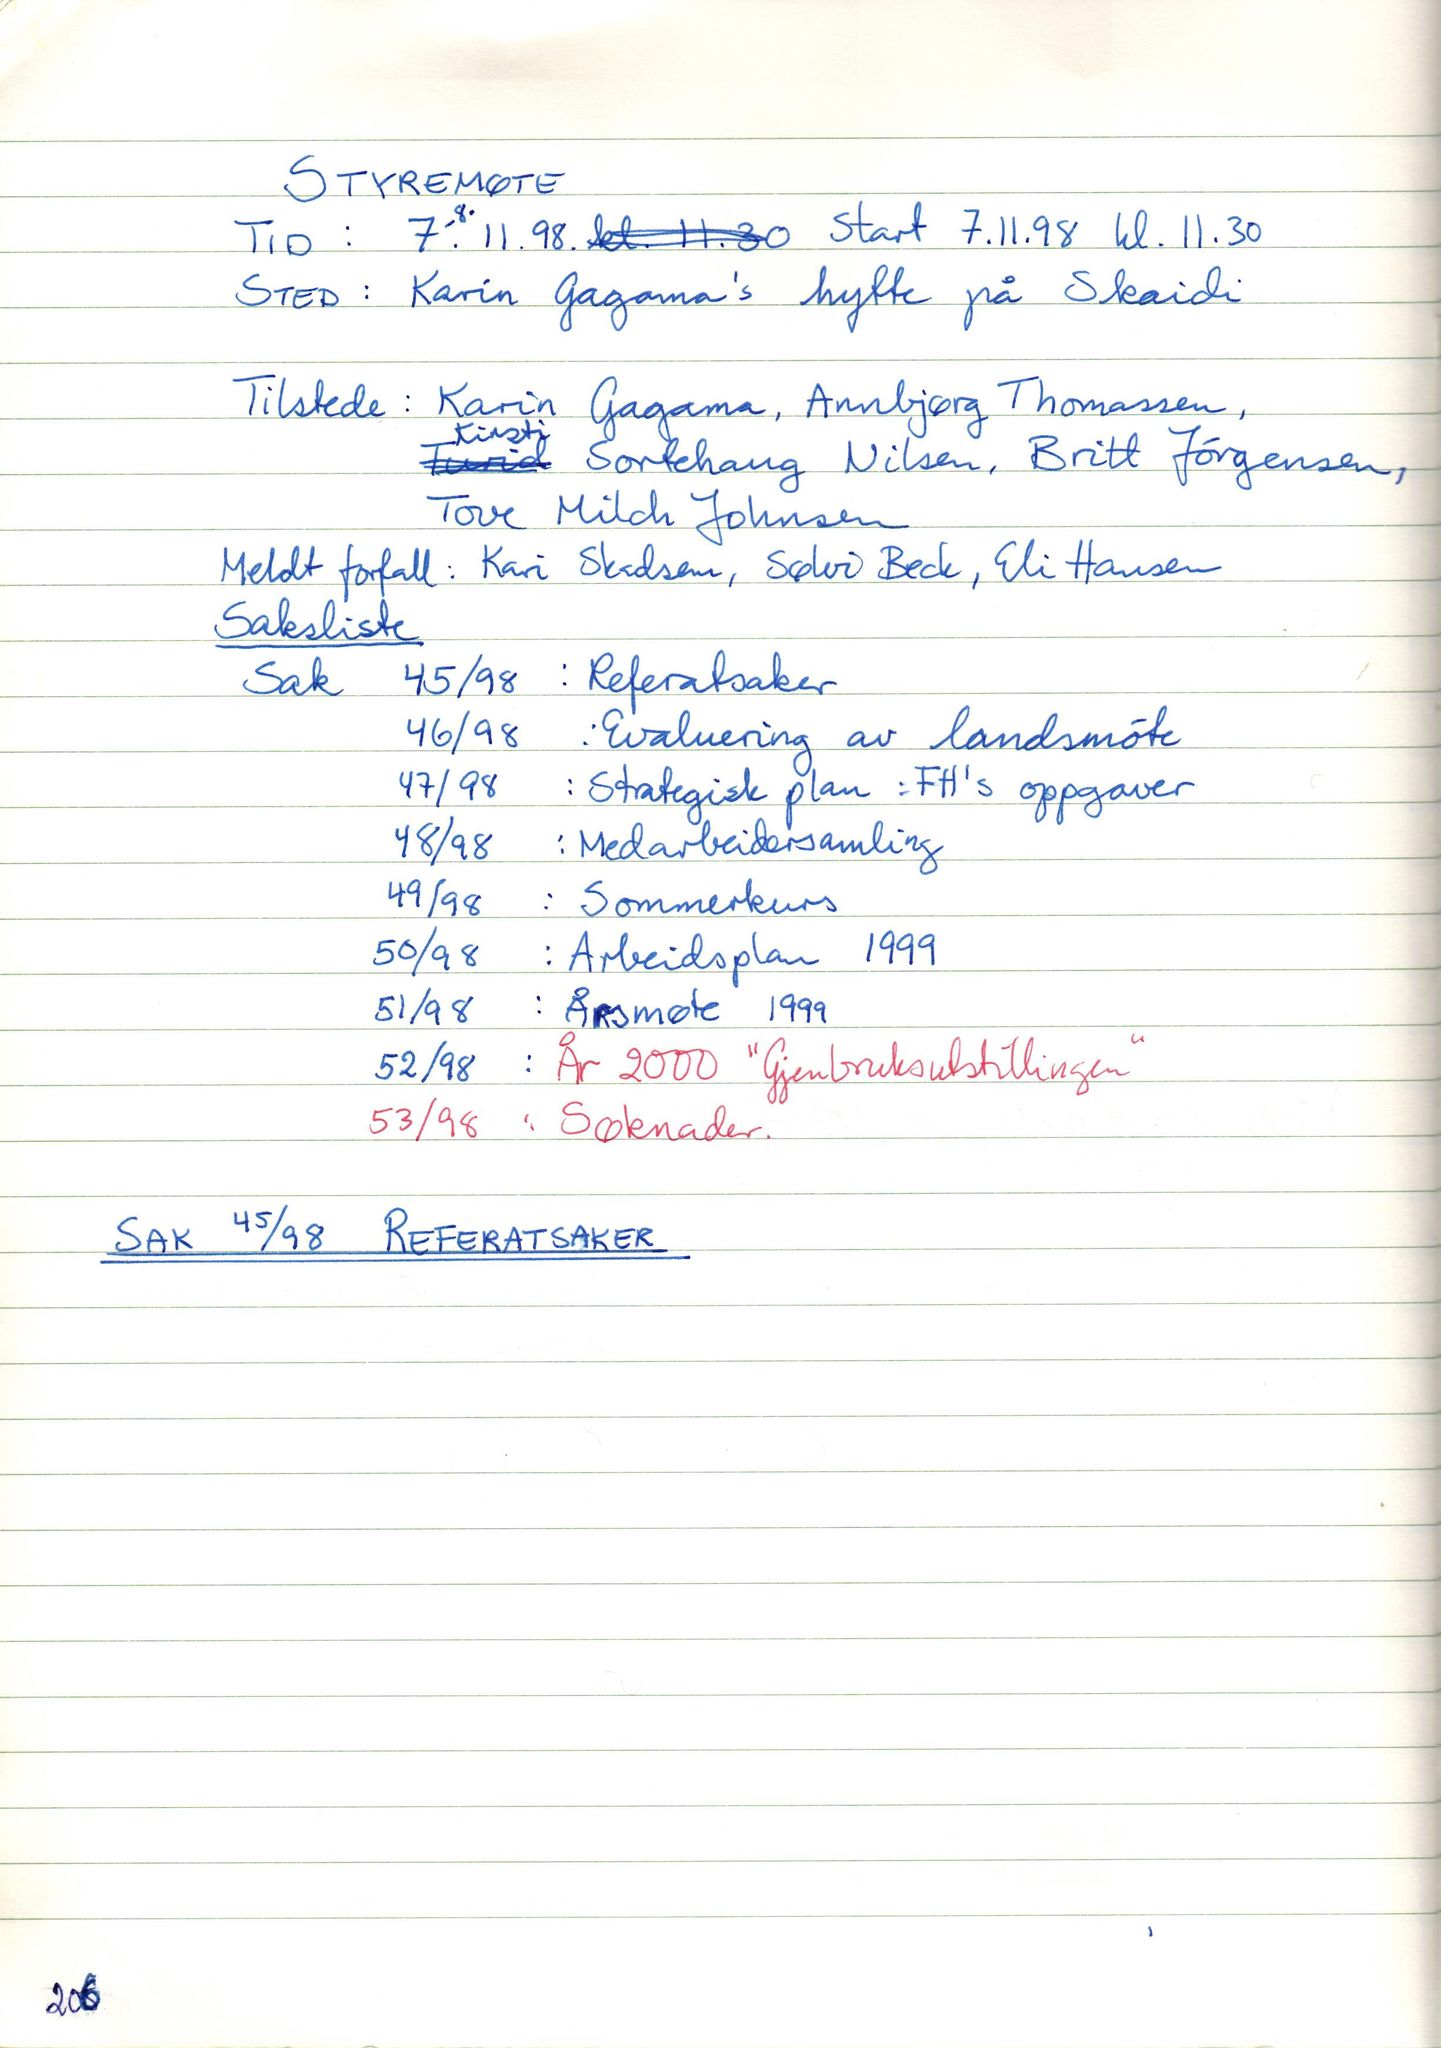 STYREMØTE
TID : 7.-8. 11.98. kl. 11.30 Start 7.11.98 kl. 11.30
STED : Karin Gagama's hytte på Skaidi
Tilstede : Karin Gagama, Annbjørg Thomassen,
Turid Kirsti Sortehaug Nilsen, Britt Jörgensen,
Tove Milch Johnsen
Meldt forfall : Kari Skadsem, Sølvi Beck, Eli Hansen
Saksliste
Sak 45/98 : Referatsaker
46/98 : Evaluering av landsmöte
47/98 : Strategisk plan : FH's oppgaver
48/98 : Medarbeidersamling
49/98 : Sommerkurs
50/98 : Arbeidsplan 1999
51/98 : Årsmøte 1999
52/98 : År 2000 "Gjenbruksutstillingen"
53/98 : Søknader.
SAK 45/98 REFERATSAKER
206